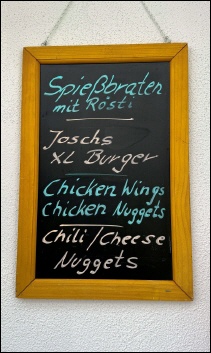 Spießbraten
mit Rösti
Joschs
XL Burger
Chicken Wings
Chicken Nuggets
Chili/Cheese
Nuggets